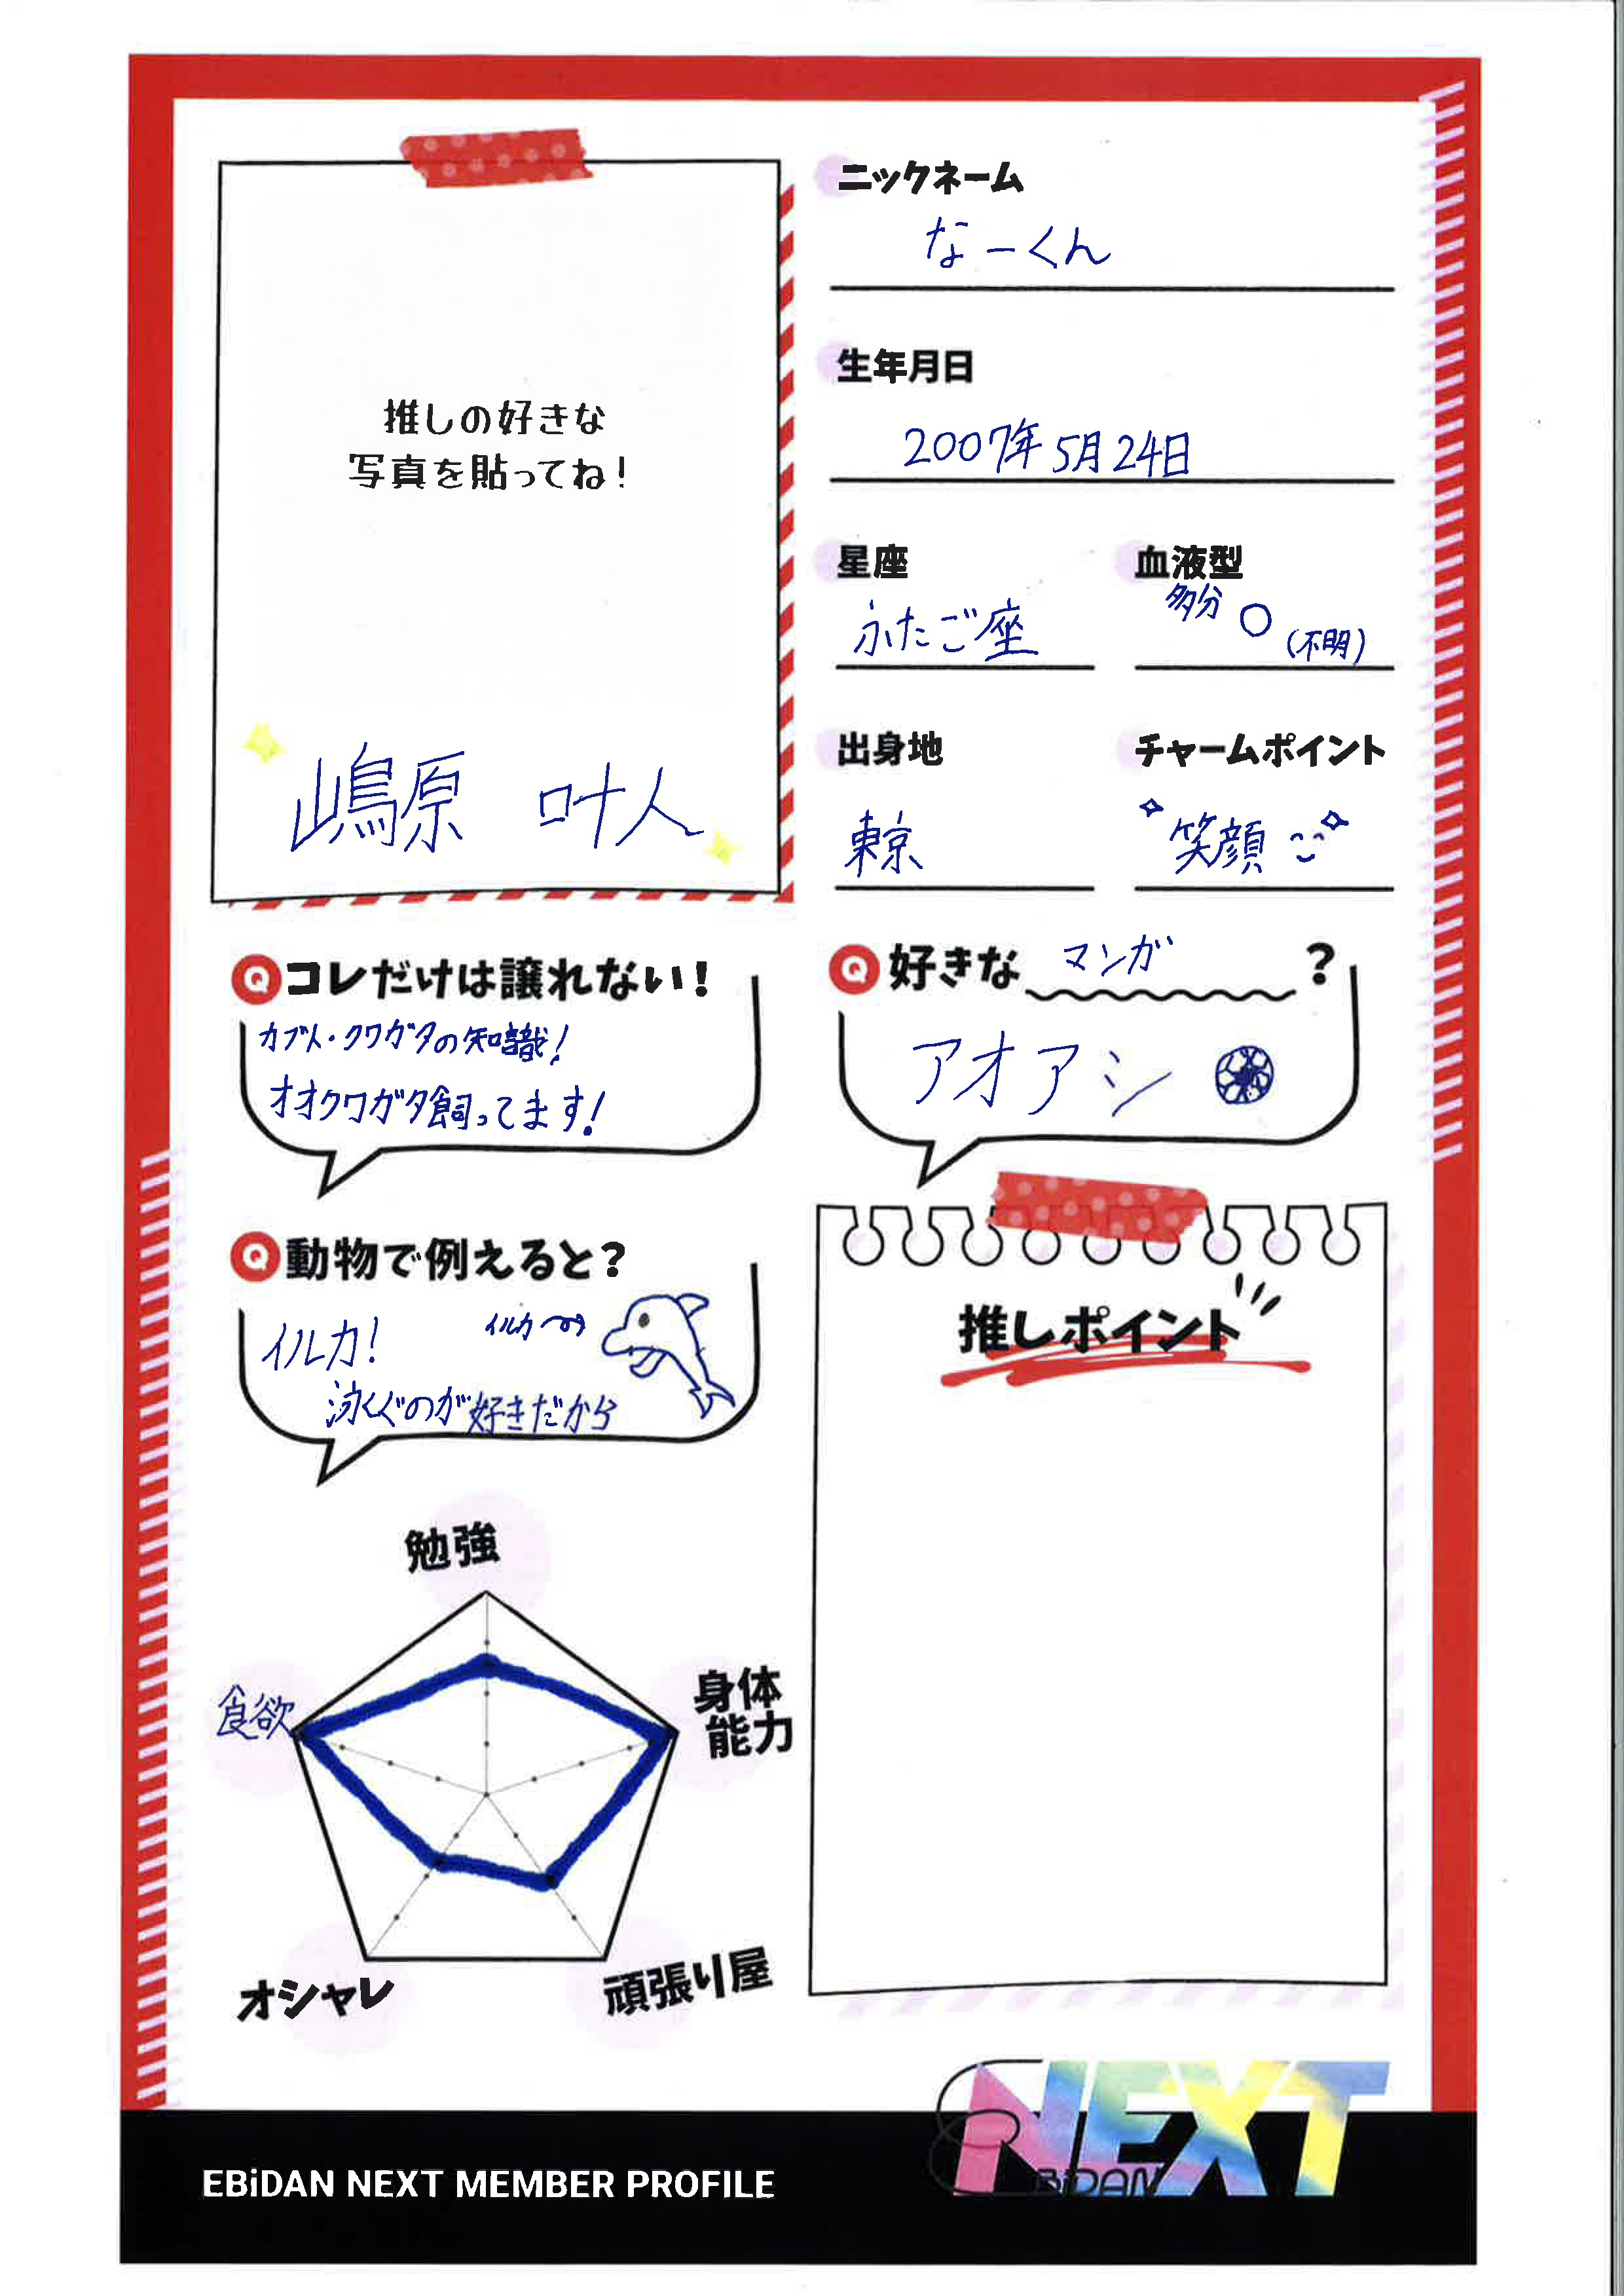 推しの好きな
写真を貼ってね!
嶋原 叶人
ニックネーム
なーくん
生年月日
2007年5月24日
星座
ふたご座
血液型
多分 O (不明)
出身地
東京
チャームポイント
笑顔
Q コレだけは譲れない!
カブト・クワガタの知識!
オオクワガタ飼ってます!
Q 好きな マンガ ?
アオアシ
Q 動物で例えると?
イルカ!
イルカ
泳ぐのが好きだから
推しポイント
勉強
身体
能力
頑張り屋
オシャレ
食欲
EBiDAN NEXT MEMBER PROFILE
NEXT
EBiDAN